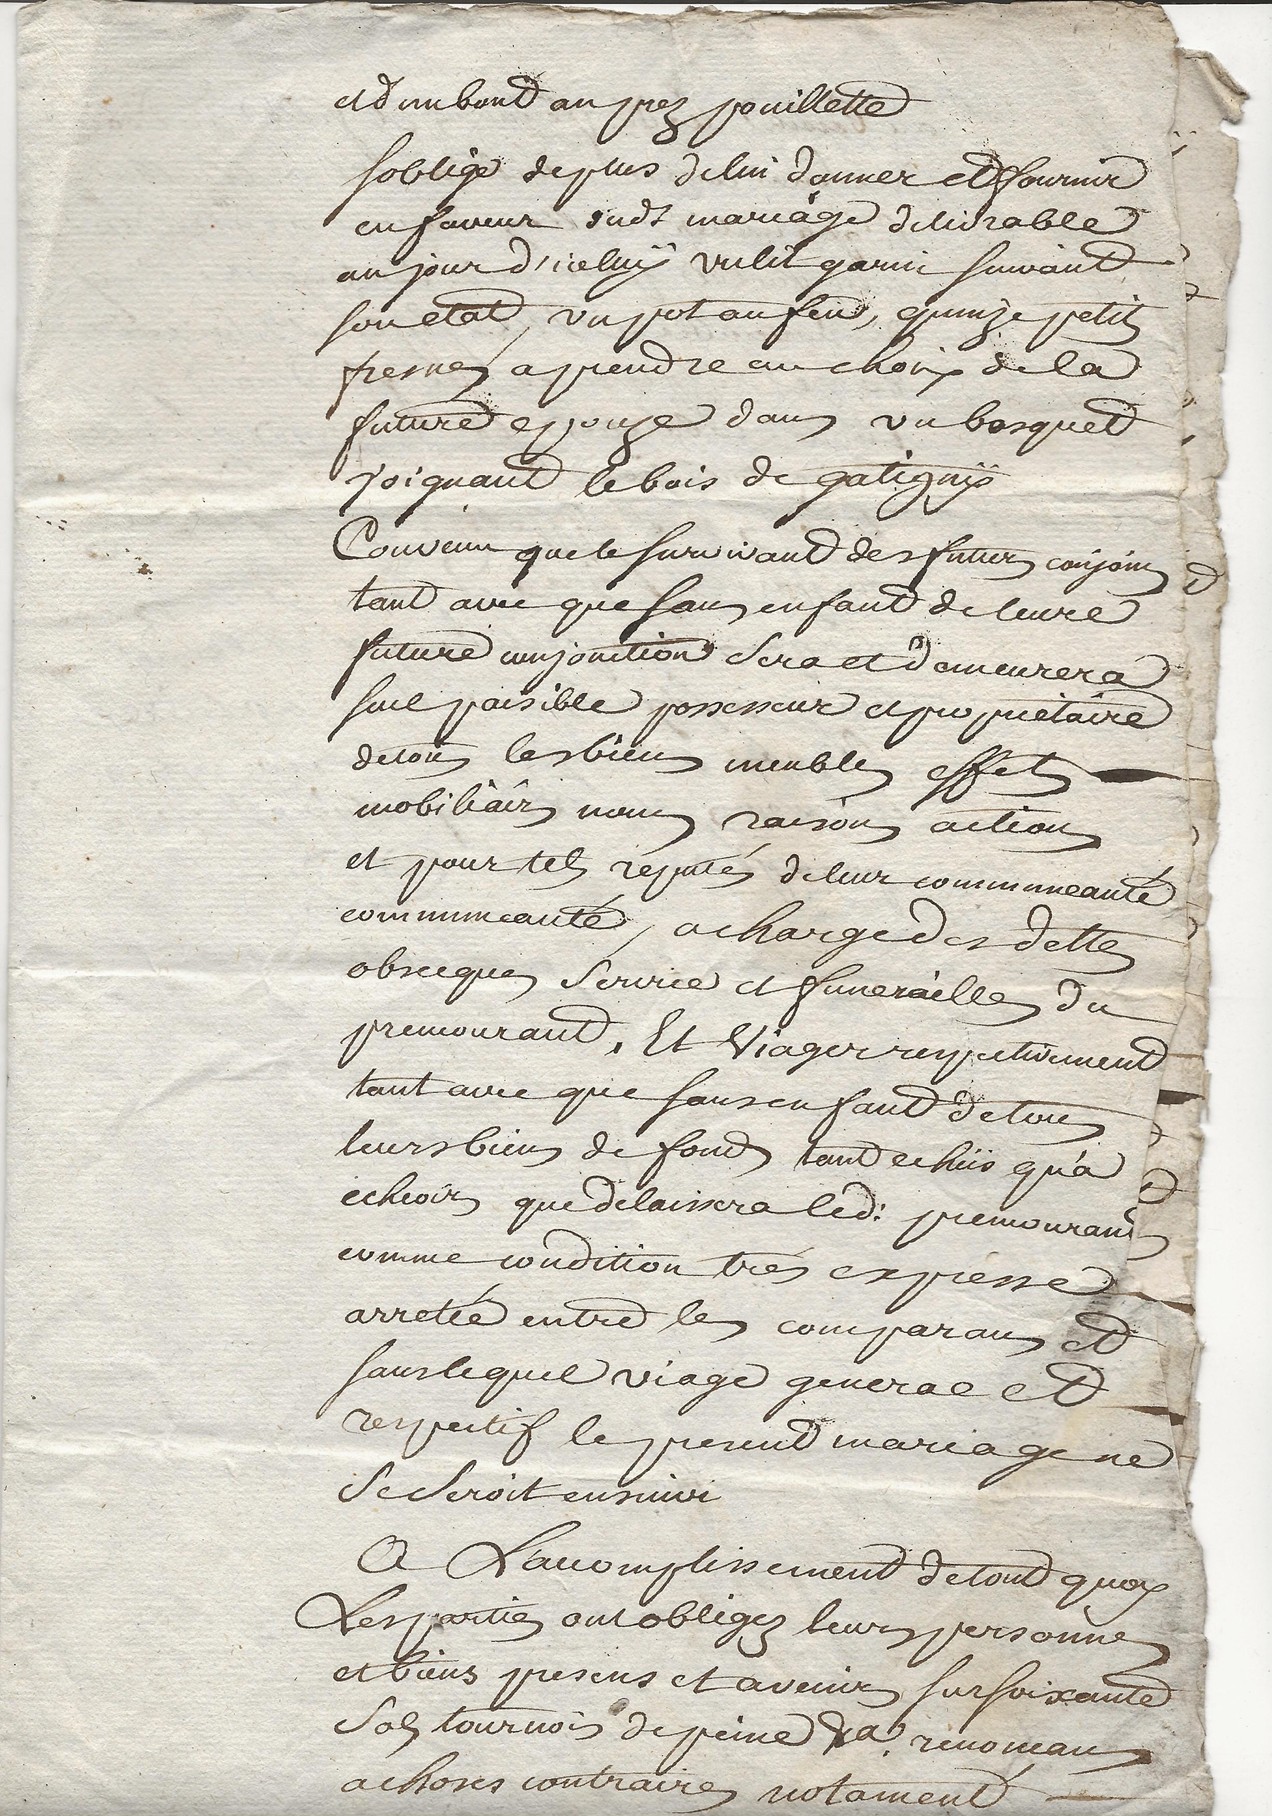 et d'un bout au prez pouillette
s'oblige de plus de lui donner et fournir
en faveur dudt mariage delivrable
au jour d'iceluÿ un lit garni suivant
son etat, un pot au feu, quinze petits
fresnes a prendre au choix de la
future epouze dans un bosquet
joignant le bois de gatignÿ
Convenu que le survivant des futurs conjoins
tant avec que sans enfant de leure
future conjonction sera et demeurera
seul paisible possesseur et proprietaire
de tous les biens meubles effets
mobiliairs noms raisons actions
et pour tels reputés de leur communeauté
communeauté, a charge des dettes
obsecques service et funerailles du
premourant. Et Viager respectivement
tant avec que sans enfant de tous
leurs biens de fonds tant echüs qu'a
echeoir que delaissera led: premourant
comme condition trés expresse
arretée entre les comparans et
sans lequel viage general et
respectif le present mariage ne
se seroit ensuivi
A L'accomplissement de tout quoy
Les parties ont obligez leurs personnes
et biens presens et avenirs sur soixante
sols tournois de peine &a. renonceans
a choses contraires notament